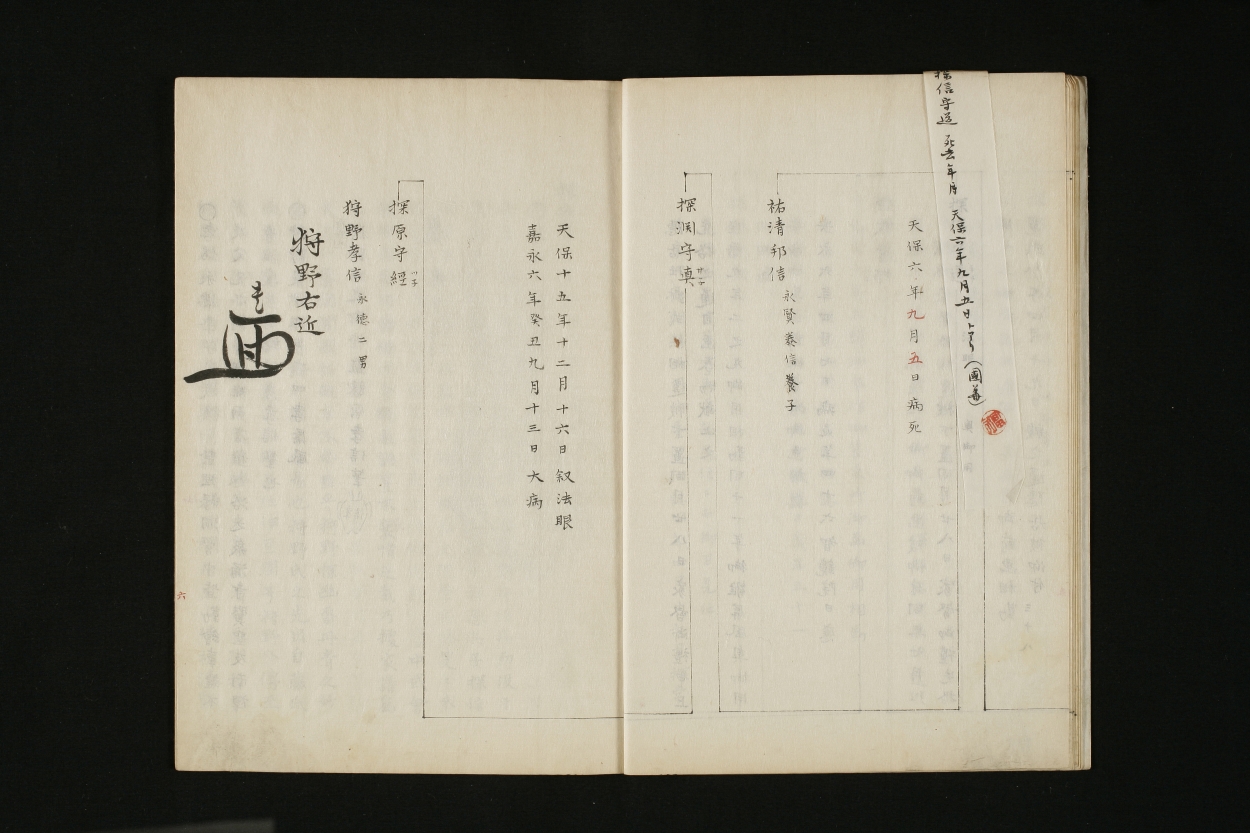 探信守道 死去年月 天保六年九月五日トアリ(國華)
天保六年九月五日病死
祐清邦信 永賢義信養子
探淵守真
天保十五年十二月十六日叙法眼
嘉永六年癸丑九月十三日大病
探原守經
狩野孝信 永徳二男
狩野右近
六